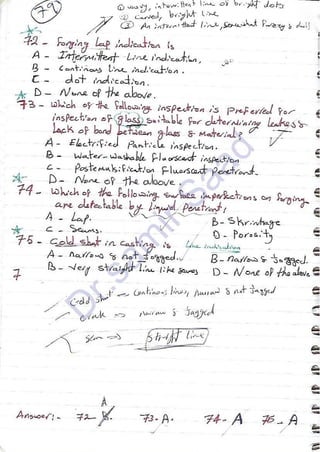 79
① wavy, intermittent line of bright dots
② Curved, bright line
③ An intermittent line, somewhat Fuzzy & dull
72 - Forging Lap indication is
A - Intermittent Line indication.
B - Continous Line indication.
C - dot indication.
D - None of the above.
73 - Which of the following inspection is preferred for
inspection of (glass) suitable for determining leakers &
lack of bond between glass & material?
A - Electrified Particle inspection.
B - Water-washable Fluorscent inspection
C - Postemulsification Fluorscent Penetrant.
D - None of the above
74 - Which of the following surface imperfections on forging
are detectable by Liquid Penetrant,
A - Lap. B - Shrinkage
C - Seams. D - Porosity
75 - Cold shut in casting is Line indication
A - narrow & not Jagged. B - narrow & Jagged.
B - Very straight line like seams D - None of the above
7
Cold shut → Continous lines, narrow & not Jagged
Crack ⇒ narrow & Jagged
Seam ⇒ Straight line
Dr. Samir Saad
A
Answer:- 72 - B. 73 - A. 74 - A 75 - A